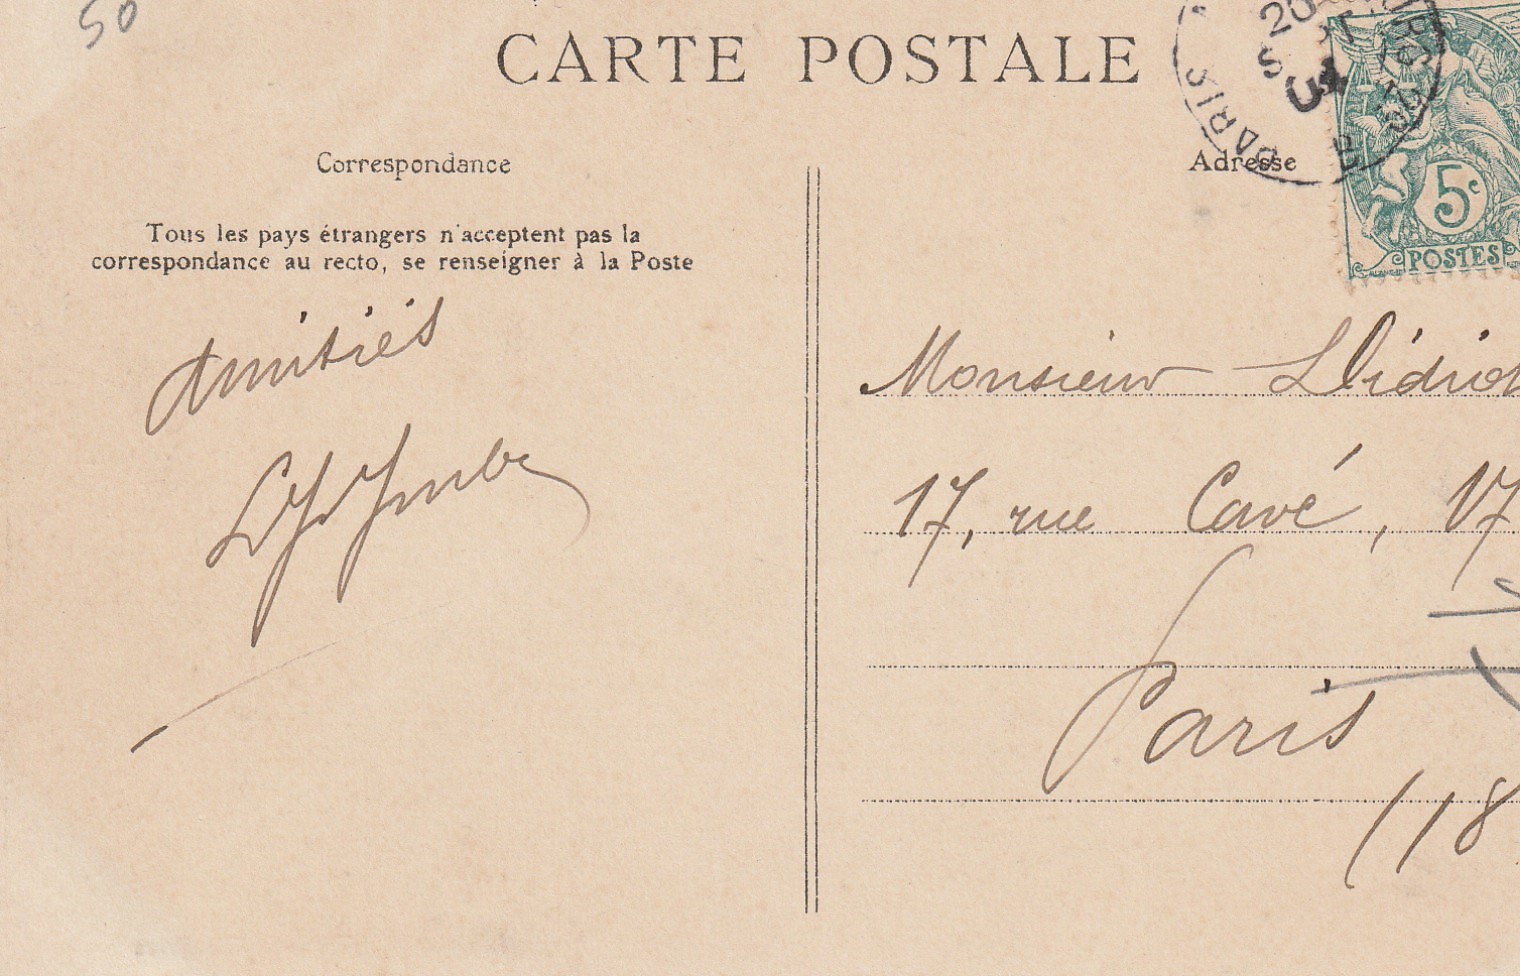 50
CARTE POSTALE
Correspondance
Adresse
Tous les pays étrangers n'acceptent pas la
correspondance au recto, se renseigner à la Poste
PARIS
20
5c
POSTES
Amitiés
Monsieur Didiot
17, rue Cavé, 17
Paris
(18